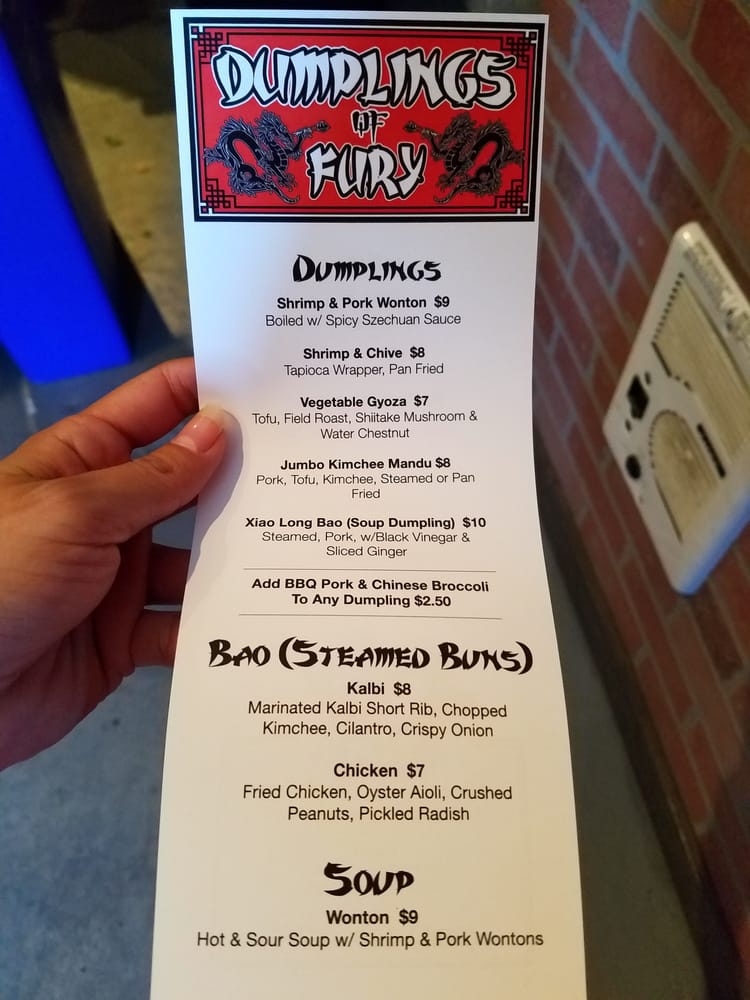 DUMPLINGS
OF
FURY
DUMPLINGS
Shrimp & Pork Wonton $9
Boiled w/ Spicy Szechuan Sauce
Shrimp & Chive $8
Tapioca Wrapper, Pan Fried
Vegetable Gyoza $7
Tofu, Field Roast, Shiitake Mushroom &
Water Chestnut
Jumbo Kimchee Mandu $8
Pork, Tofu, Kimchee, Steamed or Pan
Fried
Xiao Long Bao (Soup Dumpling) $10
Steamed, Pork, w/Black Vinegar &
Sliced Ginger
Add BBQ Pork & Chinese Broccoli
To Any Dumpling $2.50
BAO (STEAMED BUNS)
Kalbi $8
Marinated Kalbi Short Rib, Chopped
Kimchee, Cilantro, Crispy Onion
Chicken $7
Fried Chicken, Oyster Aioli, Crushed
Peanuts, Pickled Radish
SOUP
Wonton $9
Hot & Sour Soup w/ Shrimp & Pork Wontons